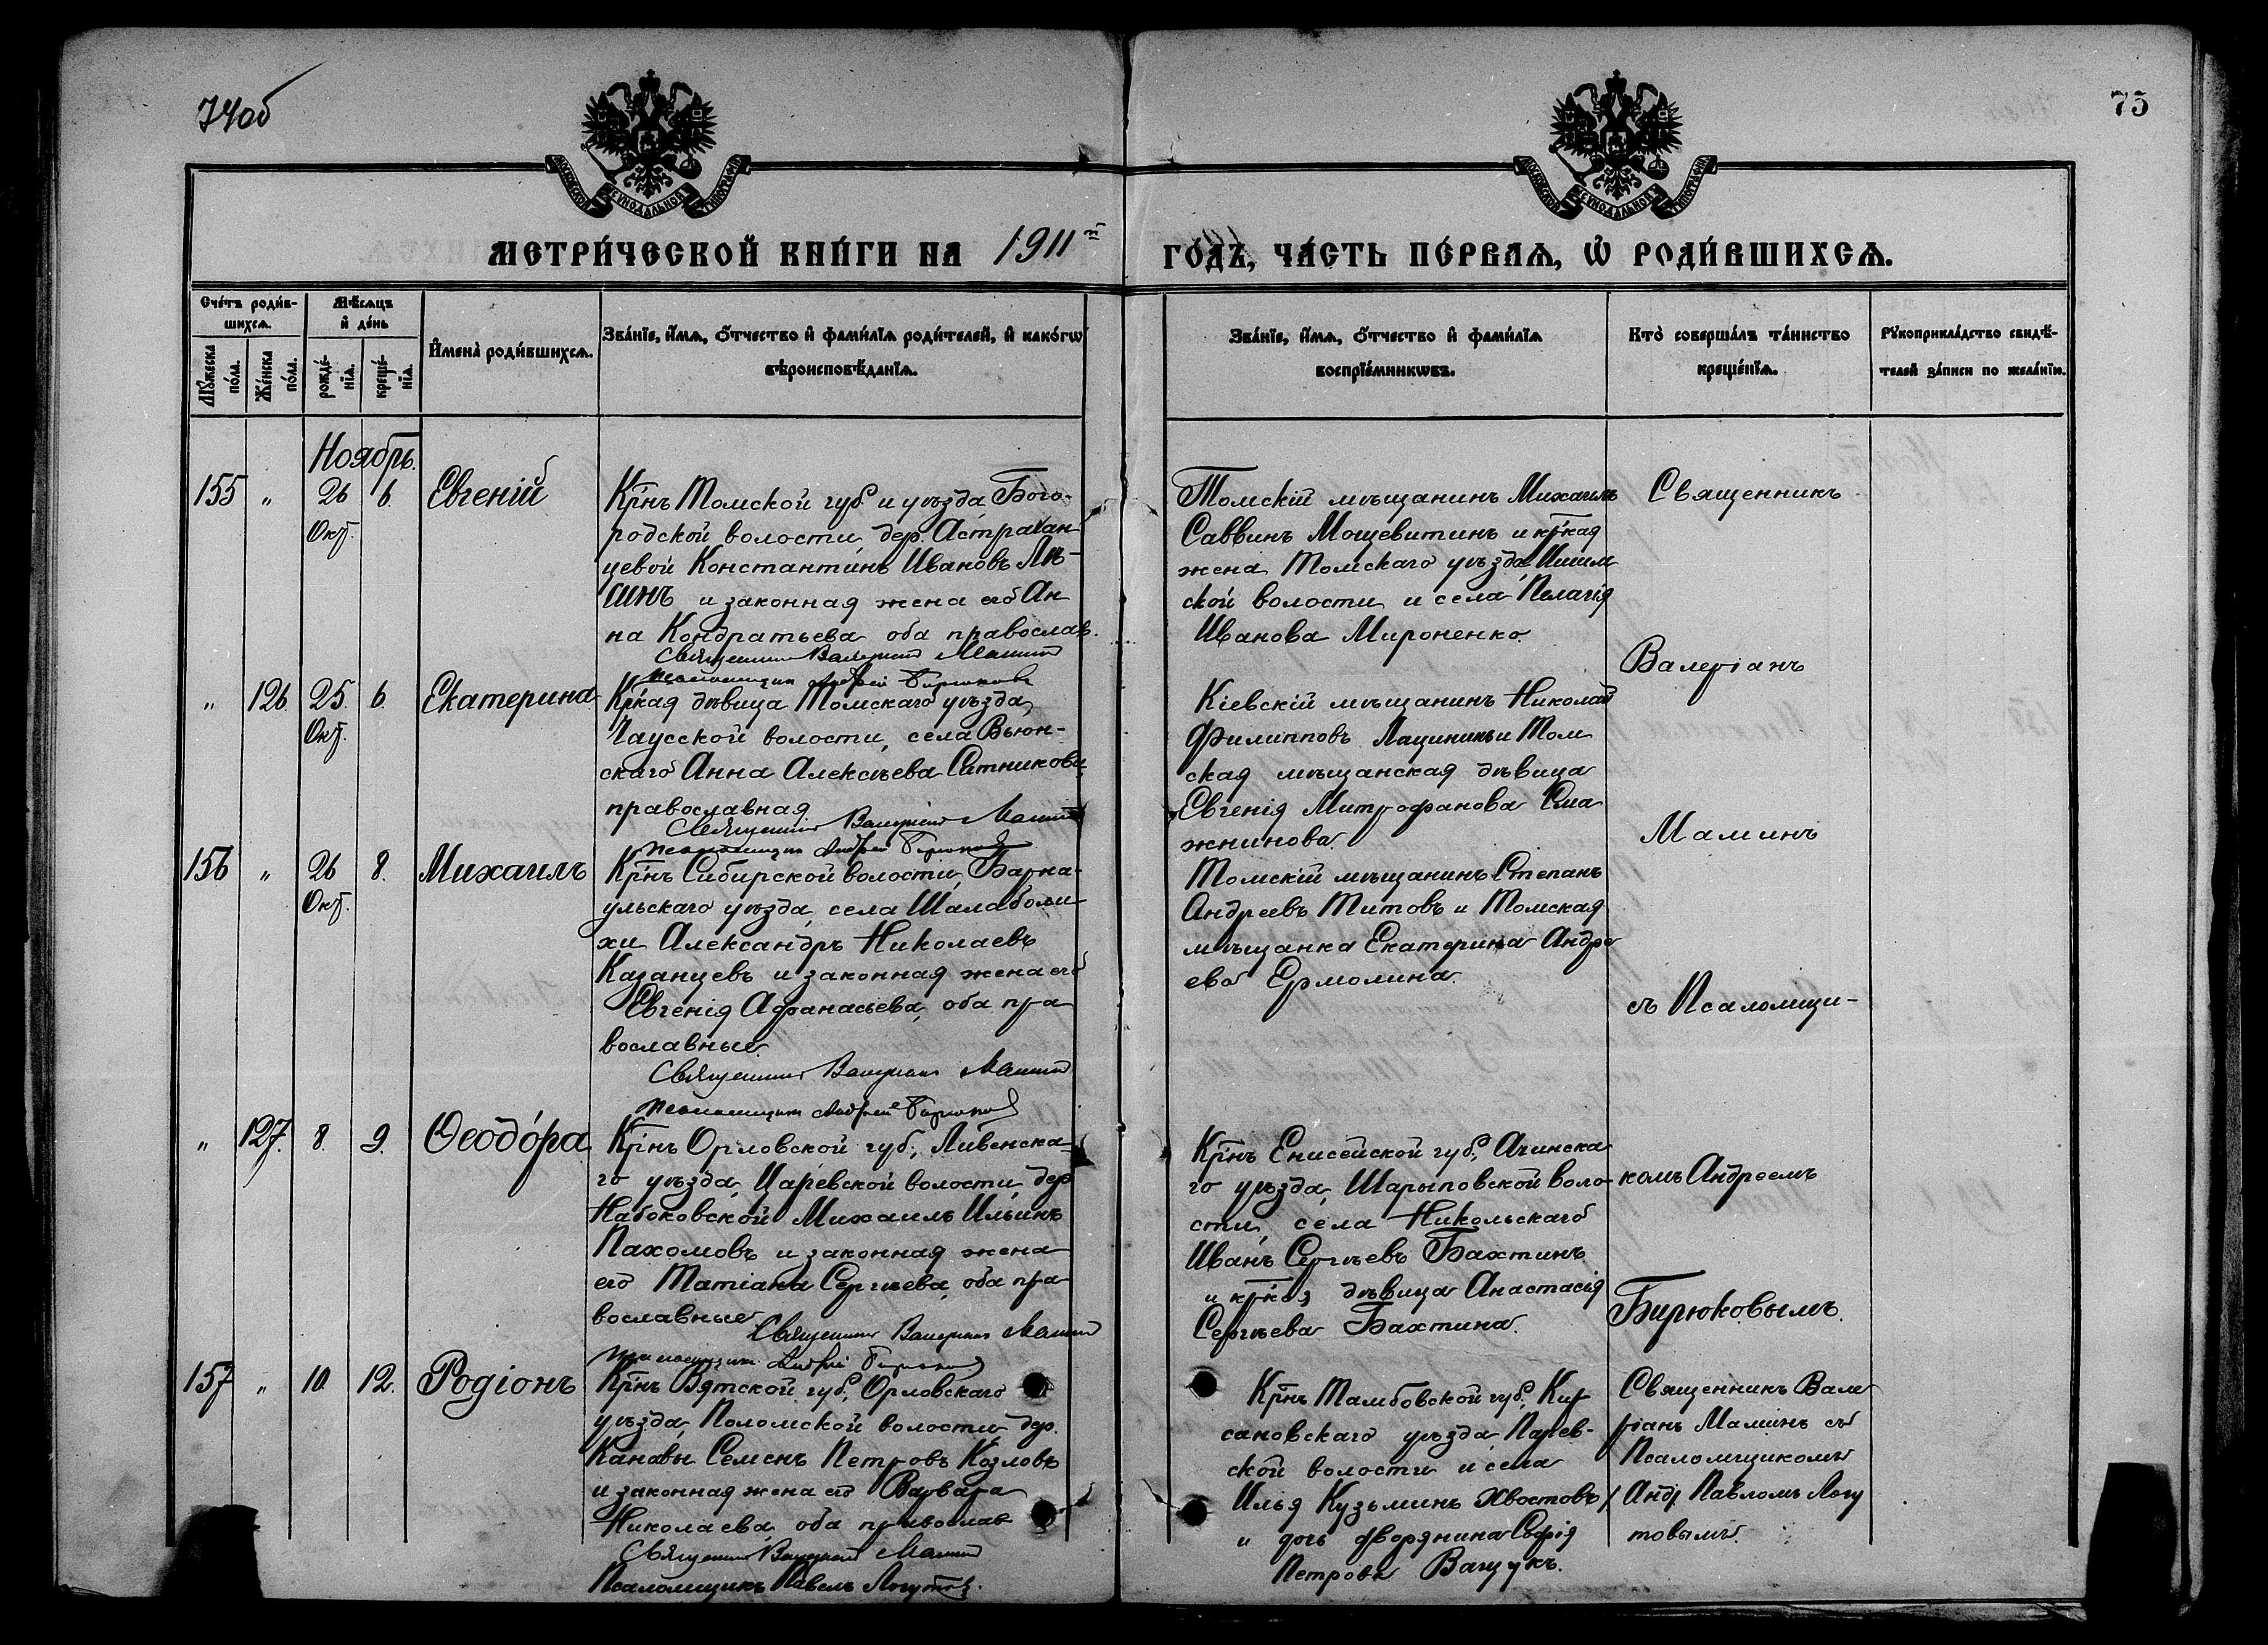 74об
75
МОСКОВСКОЙ СѴНОДАЛЬНОЙ ТИПОГРАФІИ
МОСКОВСКОЙ СѴНОДАЛЬНОЙ ТИПОГРАФІИ
МЕТРИ́ЧЕСКОЙ КНИ́ГИ НА 1911й ГО́ДЪ, ЧА́СТЬ ПЕ́РВАѦ, Ѡ҆ РОДИ́ВШИХСѦ.
Сче́тъ роди́в-
шихсѧ.
Мѣ́сѧцъ
и҆ де́нь
Мꙋ́жеска
по́ла.
Же́нска
по́ла.
рожде́-
нїѧ.
креще́-
нїѧ.
И҆мена̀ роди́вшихсѧ.
Зва́нїе, и҆́мѧ, ѻ҆́тчество и҆ фами́лїѧ роди́телей, и҆ како́гѡ
вѣроисповѣ́данїѧ.
Зва́нїе, и҆́мѧ, ѻ҆́тчество и҆ фами́лїѧ
воспрїе́мникѡвъ.
Кто̀ соверша́лъ та́инство
креще́нїѧ.
Рꙋкоприкла́дство свидѣ́-
телей за́писи по жела́нїю.
Ноябрь.
155 " 26 6. Евгеній
Окт.
Кр̃нъ Томской губ. и уѣзда, Бого-
родской волости, дер. Астрахан
цевой Константинъ Ивановъ
и законная жена его Ан
на Кондратьева оба православ.
Священникъ Валеріанъ Маминъ
Псаломщикъ Андрей Бирюковъ
Томскій мѣщанинъ Михаилъ
Саввинъ Мощевитинъ и кр̃кая
жена Томскаго уѣзда, Ишим
ской волости и села Пелагія
Иванова Мироненко.
Священникъ
Валеріанъ
" 126. 25. 6. Екатерина
Окт.
Кр̃кая дѣвица Томскаго уѣзда,
Чаусской волости, села Вьюн-
скаго Анна Алексѣева Ситникова
православная
Священникъ Валеріанъ Маминъ
Псаломщикъ Андрей Бирюковъ
Кіевскій мѣщанинъ Николай
Филипповъ и Том
ская мѣщанская дѣвица
Евгенія Митрофанова Сма
жнинова.
Маминъ
156 " 26 8. Михаилъ
Окт.
Кр̃нъ Сибирской волости, Барна-
ульскаго уѣзда, села Шалаболи
хи Александръ Николаевъ
Казанцевъ и законная жена его
Евгенія Афанасьева, оба пра
вославные.
Священникъ Валеріанъ Маминъ
Псаломщикъ Андрей Бирюковъ
Томскій мѣщанинъ Степанъ
Андреевъ Титовъ и Томская
мѣщанка Екатерина Андре
ева Ермолина.
съ Псаломщи-
" 127. 8. 9. Ѳеодо́ра
Кр̃нъ Орловской губ., Ливенска-
го уѣзда, Царевской волости, дер.
Набоковской Михаилъ Ильинъ
Пахомовъ и законная жена
его Татіана Сергѣева, оба пра
вославные
Священникъ Валеріанъ Маминъ
Псаломщикъ Андрей Бирюковъ
Кр̃нъ Енисейской губ., Ачинска
го уѣзда, Шарыповской воло-
сти, села Никольскаго
Иванъ Сергѣевъ Бахтинъ
и кр̃кая дѣвица Анастасія
Сергѣева Бахтина.
комъ Андреемъ
Бирюковымъ.
157 " 10. 12. Родіонъ
Кр̃нъ Вятской губ., Орловскаго
уѣзда, Поломской волости, дер.
Канавы Семенъ Петровъ Козловъ
и законная жена его Варвара
Николаева, оба православ
Священникъ Валеріанъ Маминъ
Псаломщикъ Павелъ Логутовъ.
Кр̃нъ Тамбовской губ., Кир
сановскаго уѣзда, Парев-
ской волости и села
Илья Кузьминъ Хвостовъ
и дочь дворянина Софія
Петрова Ващукъ.
Священникъ Вале
ріанъ Маминъ съ
Псаломщикомъ
Андр. Павломъ Логу
товымъ.